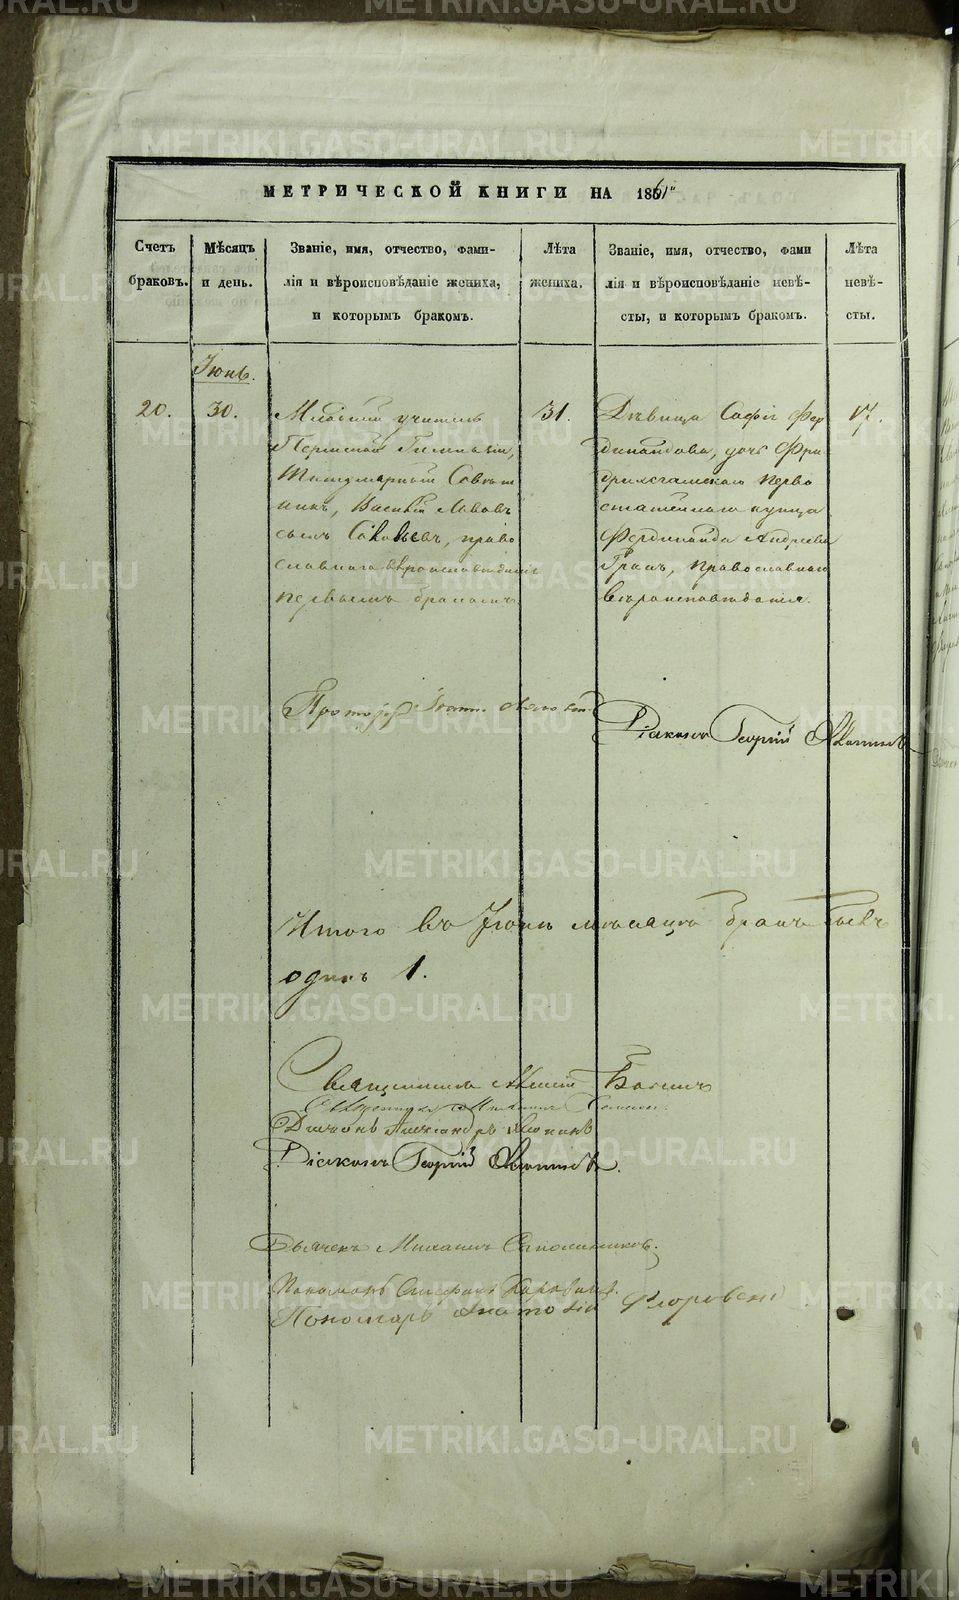 МЕТРИЧЕСКОЙ КНИГИ НА 1861
Счетъ браковъ.
Мѣсяцъ и день.
Званіе, имя, отчество, фами-
лія и вѣроисповѣданіе жениха,
и которымъ бракомъ.
Лѣта жениха.
Званіе, имя, отчество, фами
лія и вѣроисповѣданіе невѣ-
сты, и которымъ бракомъ.
Лѣта невѣ-
сты.
Іюнь.
20.
30.
Младшій учитель
Пермской Гимназіи,
Титулярный Совѣт
никъ, Василій Львовъ
сынъ Соловьевъ, право
славнаго вѣроисповѣданія
первымъ бракомъ
31.
Дѣвица Софія Фер
динандова, дочь Фри
дрихсгамскаго перво
статейнаго купца
Фердинанда Андреева
православнаго
вѣроисповѣданія.
17.
Іоаннъ
Діаконъ Георгій
Итого въ Іюнѣ мѣсяцѣ бракъ
одинъ 1.
Священникъ
Священникъ Михаилъ
Діаконъ Александръ
Діаконъ Георгій
Дьячекъ Михаилъ
Пономарь Стефанъ
Пономарь Анатолій Флоровскій
METRIKI.GASO-URAL.RU